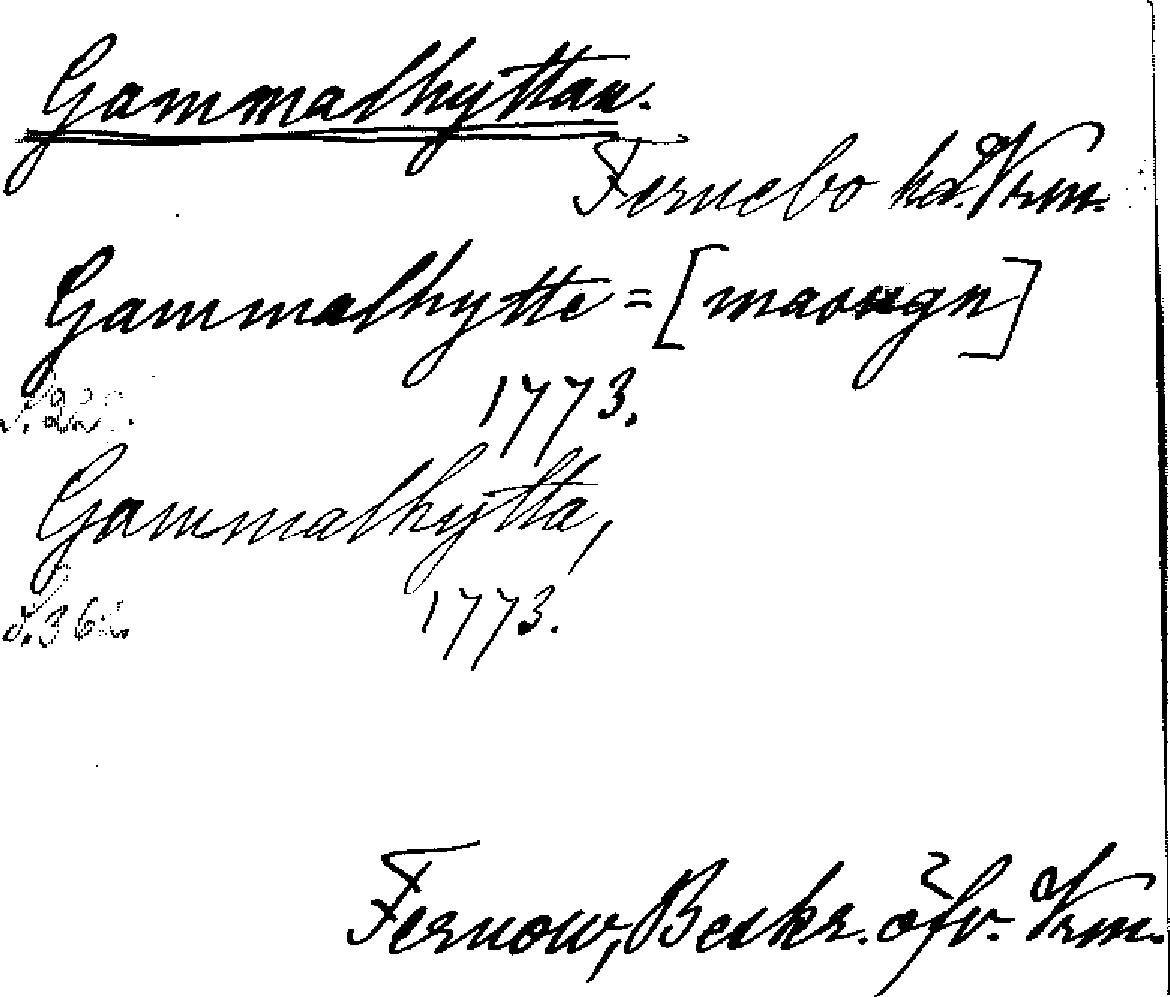 Gammalhyttan.
Fernebo hd. Vrm.
Gammalhytte = [maougn]
1773.
Gammalhytta,
s. 362.
1773.
Fernow, Beskr. öfv. Vrm.